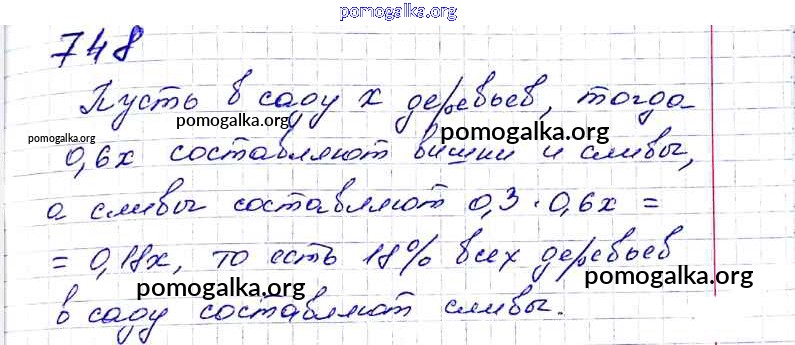 pomogalka.org
748
Пусть в саду x деревьев, тогда
pomogalka.org
pomogalka.org
pomogalka.org
0,6x составляют вишни и сливы,
а сливы составляют 0,3 · 0,6x =
= 0,18x, то есть 18% всех деревьев
pomogalka.org
pomogalka.org
в саду составляют сливы.